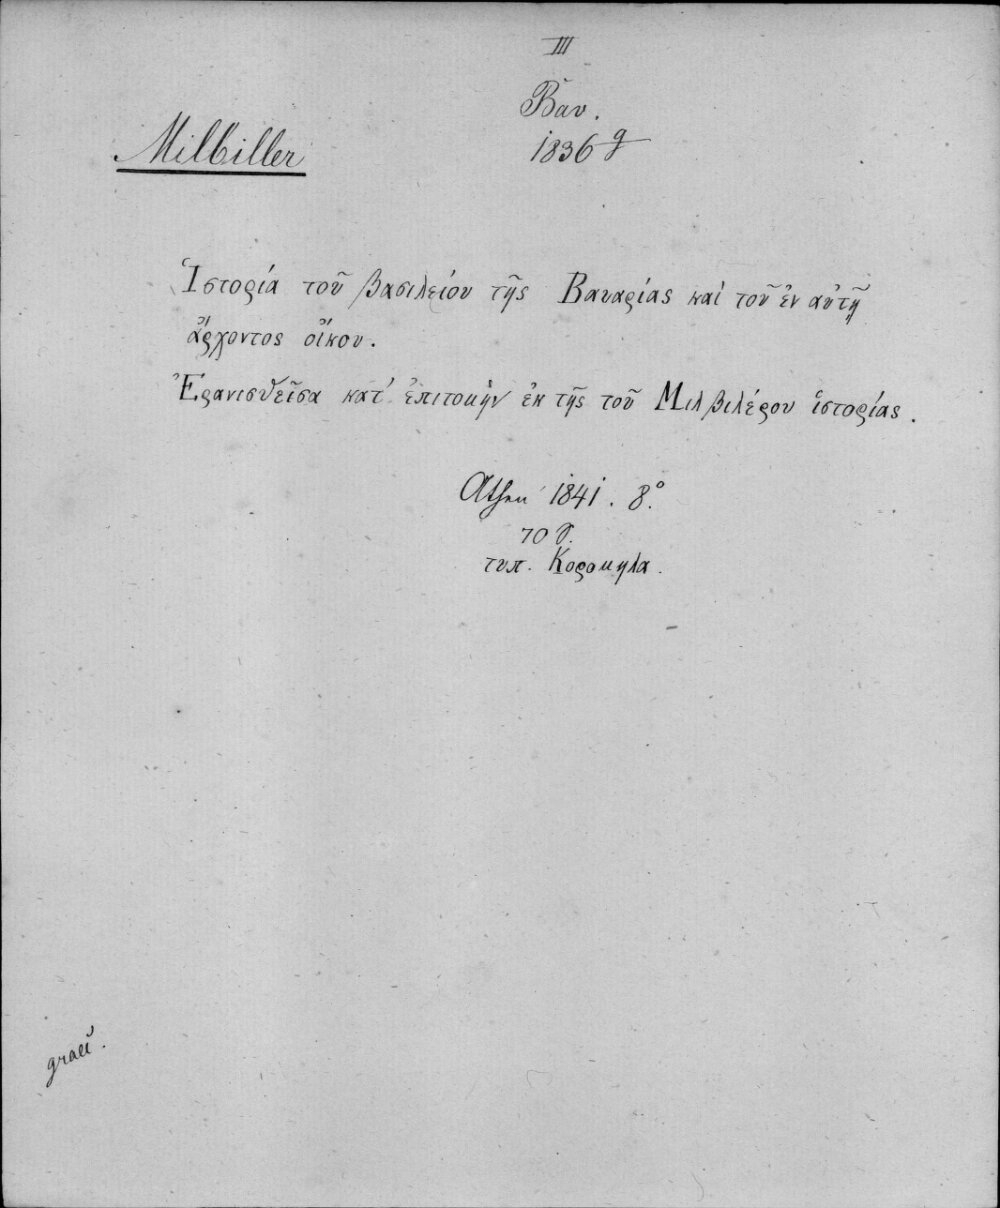 III
Bav.
1836 g
Milbiller
Ἱστορία τοῦ βασιλείου τῆς Βαυαρίας καὶ τοῦ ἐν αὐτῇ
ἄρχοντος οἴκου.
Ἐρανισθεῖσα κατ' ἐπιτομὴν ἐκ τῆς τοῦ Μιλβιλέρου ἱστορίας.
Athen 1841. 8.°
70 S.
τυπ. Κορομηλα.